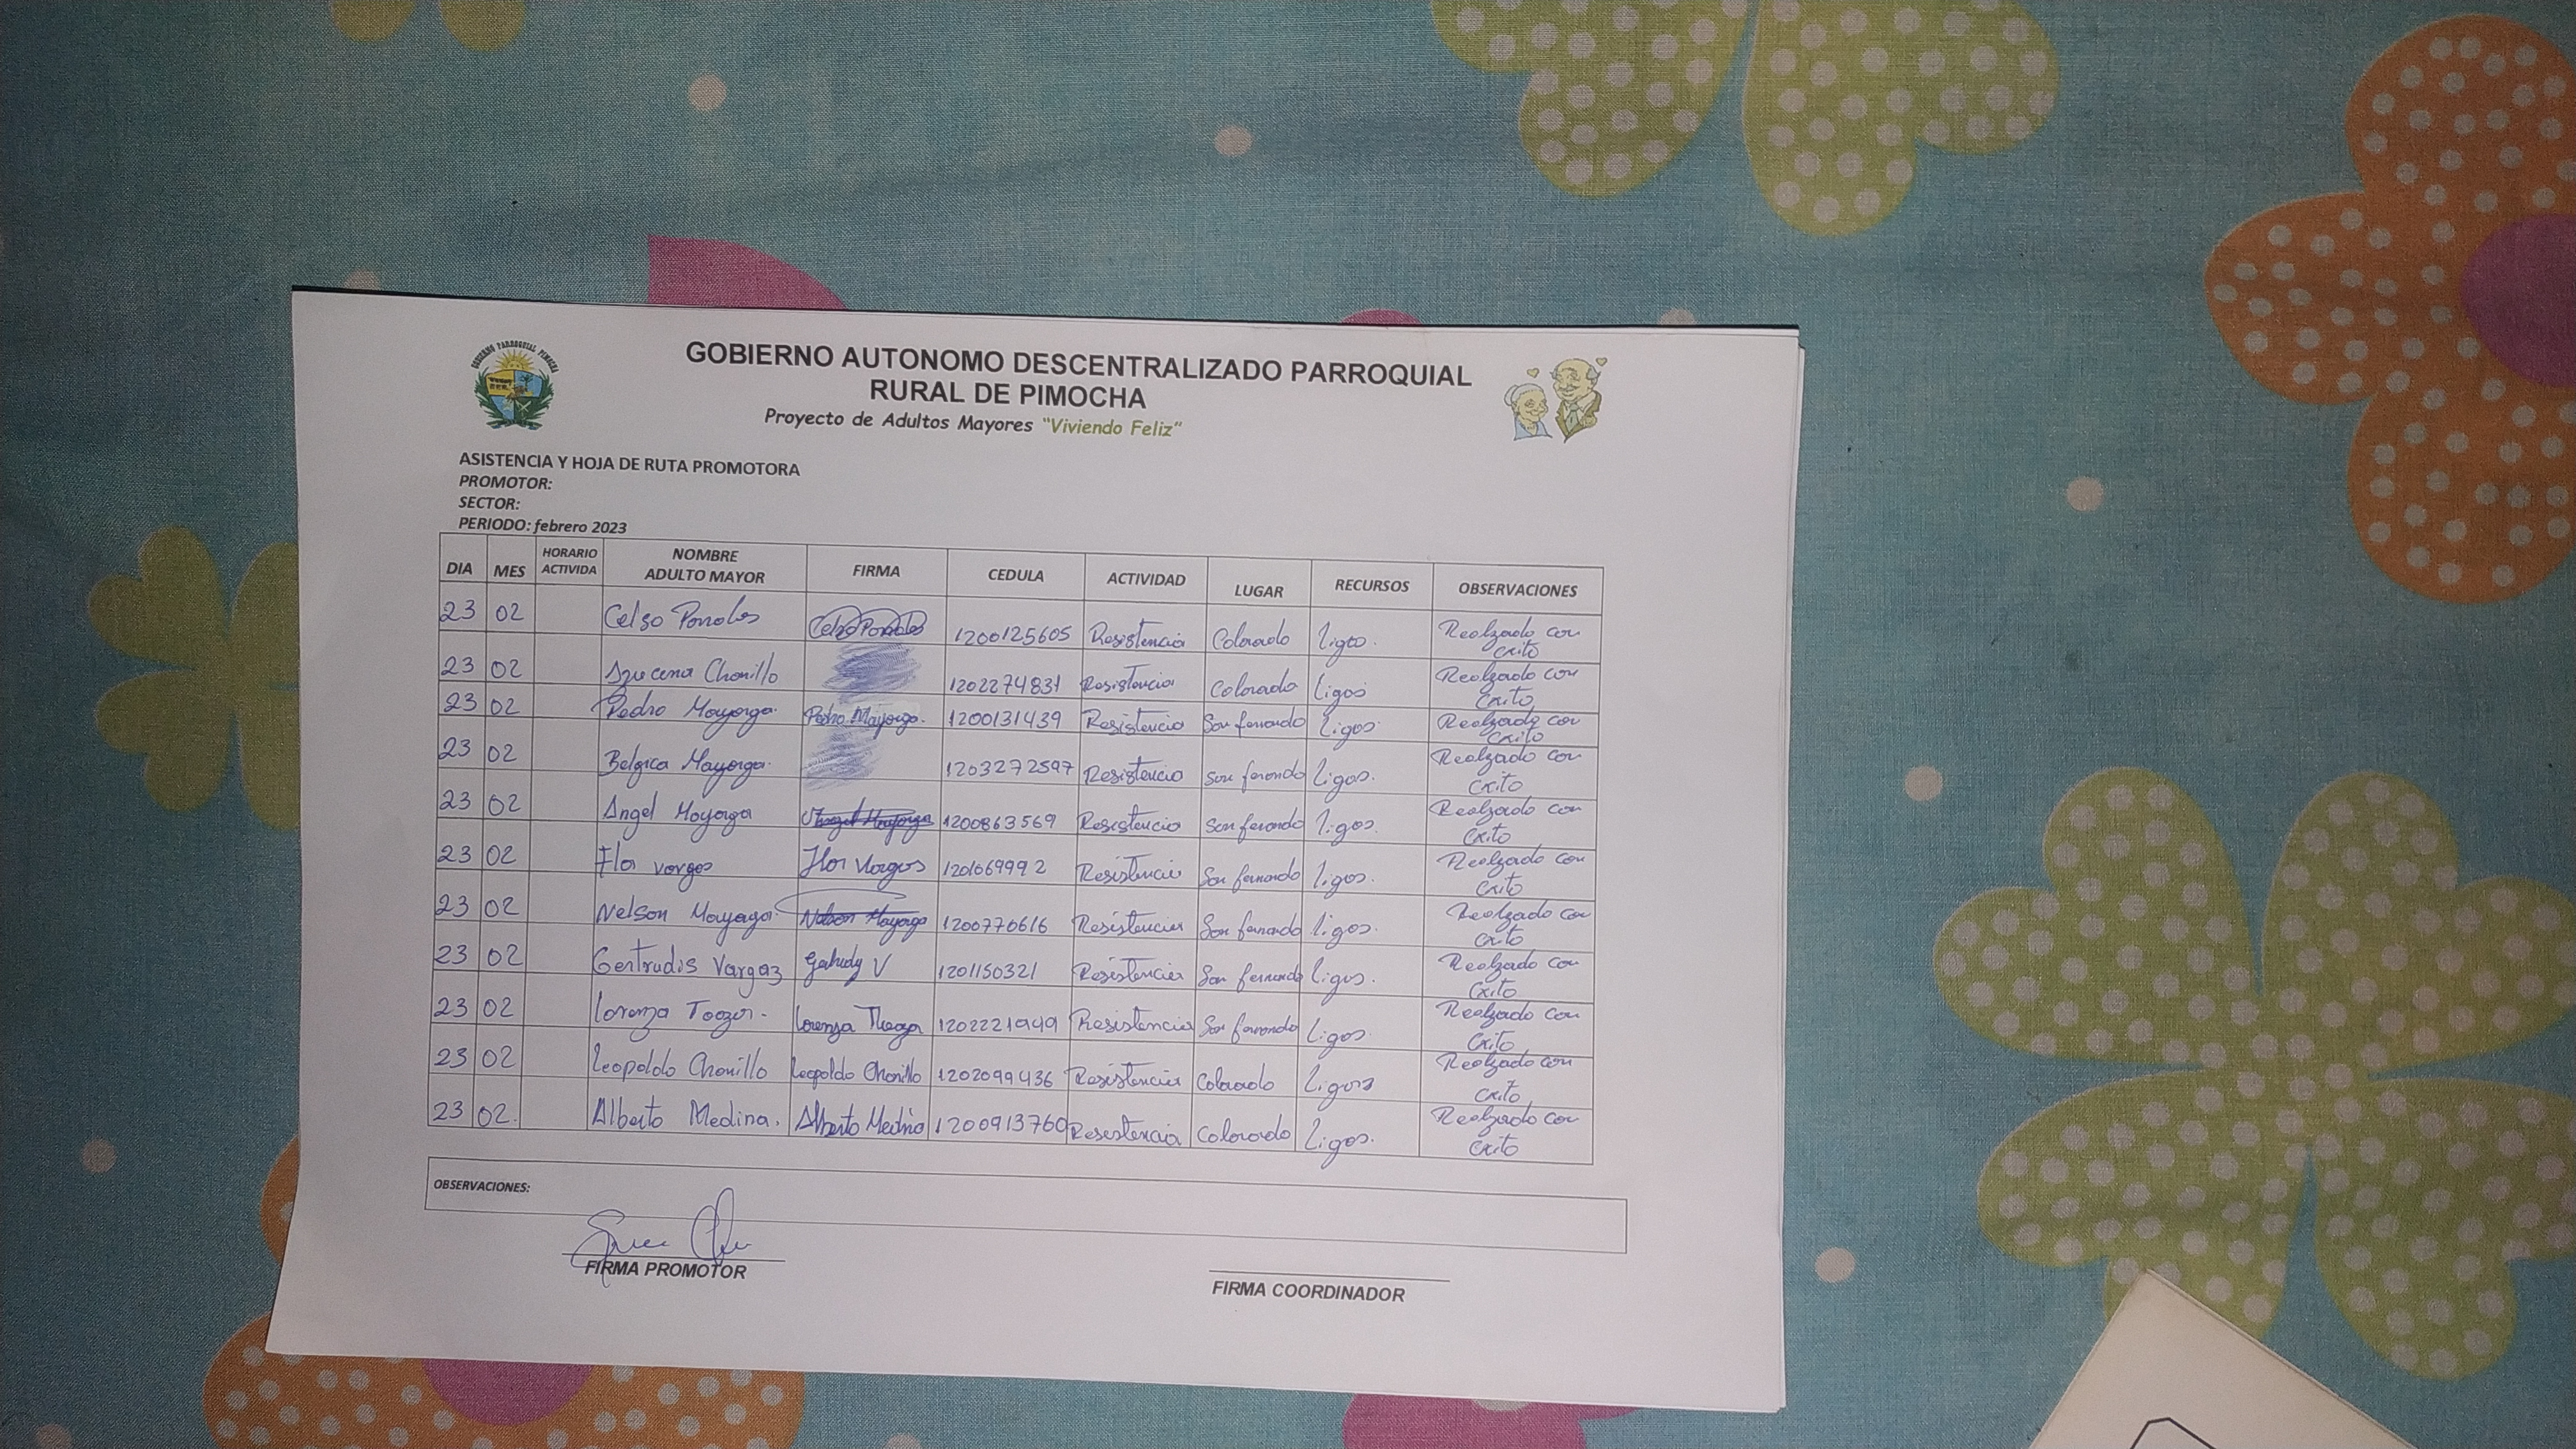 GOBIERNO PARROQUIAL PIMOCHA
GOBIERNO AUTONOMO DESCENTRALIZADO PARROQUIAL
RURAL DE PIMOCHA
Proyecto de Adultos Mayores "Viviendo Feliz"
ASISTENCIA Y HOJA DE RUTA PROMOTORA
PROMOTOR:
SECTOR:
PERIODO: febrero 2023
DIA MES HORARIO ACTIVIDA NOMBRE ADULTO MAYOR FIRMA CEDULA ACTIVIDAD LUGAR RECURSOS OBSERVACIONES
23 02 Celso 1200125605 Resistencia Colorado Ligas. Realzado con exito
23 02 Azucena Chonillo 1202274831 Resistencia Colorado Ligas Realzado con exito
23 02 Pedro Mayorga. Pedro Mayorga. 1200131439 Resistencia San fernando Ligas Realzado con exito
23 02 Belgica Mayorga. 1203272597 Resistencia San fernando Ligas. Realzado con exito
23 02 Angel Mayorga Angel Mayorga 1200863569 Resistencia San fernando Ligas. Realzado con exito
23 02 Flor vargas Flor Vargas 1201069992 Resistencia San fernando Ligas. Realzado con exito
23 02 Nelson Mayorga. Nelson Mayorga 1200770616 Resistencia San fernando Ligas. Realzado con exito
23 02 Gertrudis Vargaz V 1201150321 Resistencia San fernando Ligas. Realzado con exito
23 02 Lorenza Lorenza 1202221949 Resistencia San fernando Ligas. Realzado con exito
23 02 Leopoldo Chonillo Leopoldo Chonillo 1202099436 Resistencia Colorado Ligas Realzado con exito
23 02. Alberto Medina. Alberto Medina 1200913760 Resistencia Colorado Ligas. Realzado con exito
OBSERVACIONES:
FIRMA PROMOTOR
FIRMA COORDINADOR